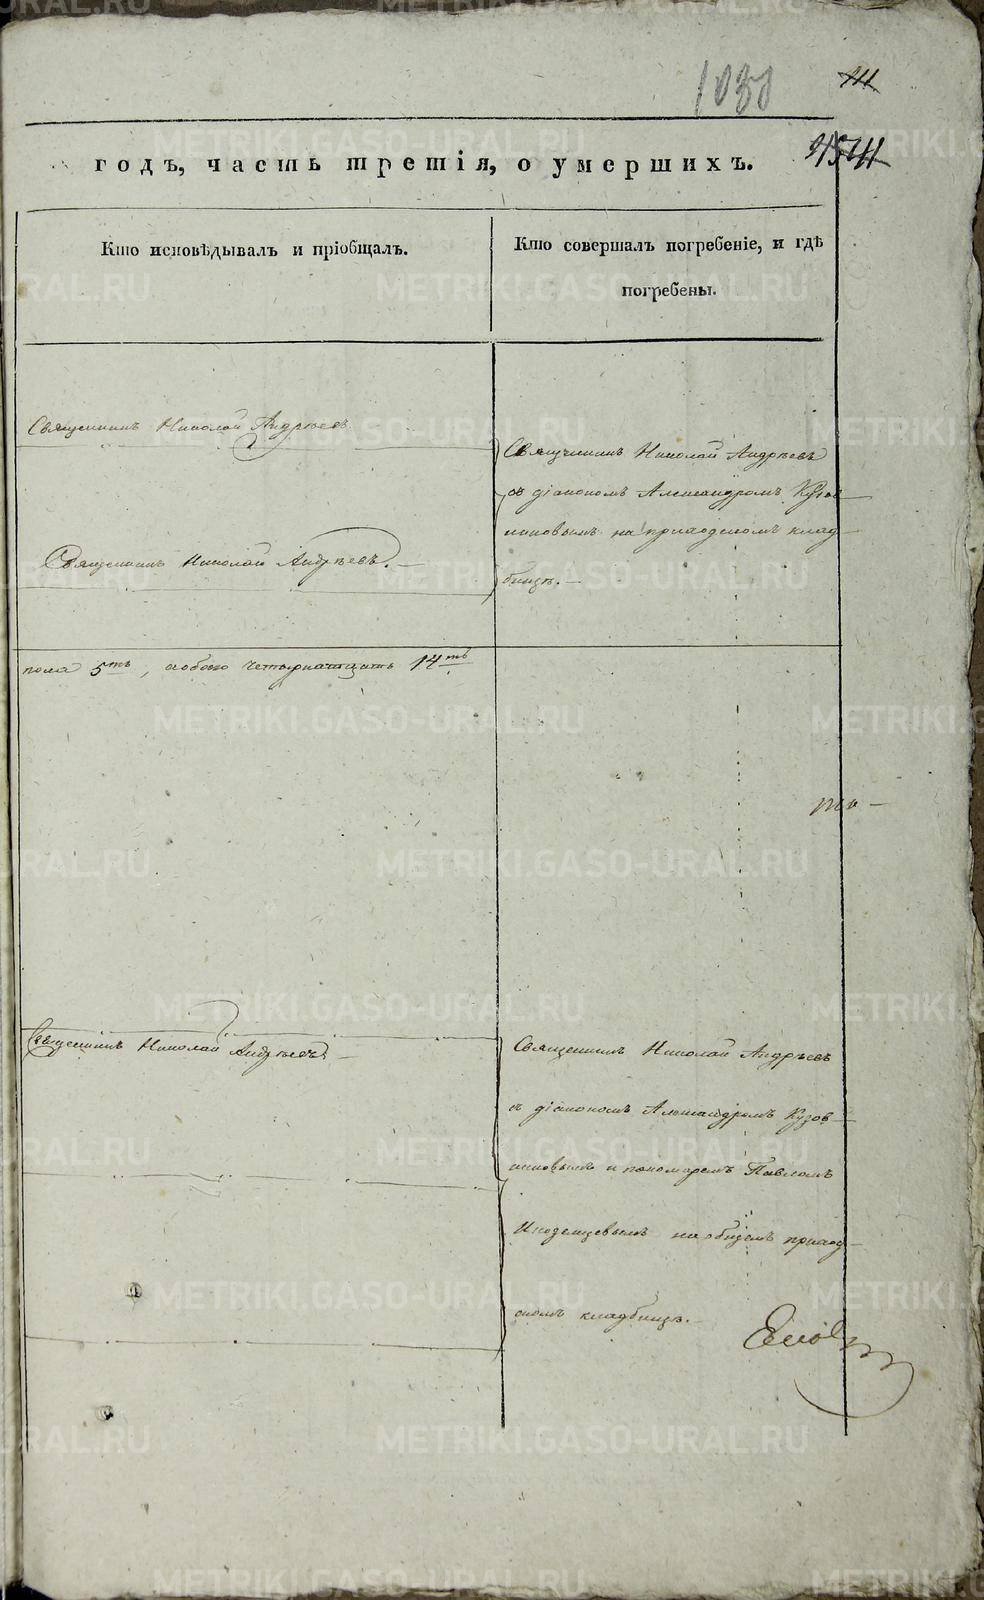 1030
111
4541
годъ, часть третія, о умершихъ.
Кто исповѣдывалъ и пріобщалъ.
Кто совершалъ погребеніе, и гдѣ
погребены.
Священникъ Николай Андрѣевъ
Священникъ Николай Андрѣевъ
съ діакономъ Александромъ Кузов
никовымъ на приходскомъ клад
Священникъ Николай Андрѣевъ.
бищѣ.
пола 5ть, обоего четырнатцать 14ть
Священникъ Николай Андрѣевъ
Священникъ Николай Андрѣевъ
съ діакономъ Александромъ Кузов
никовымъ и пономаремъ Павломъ
Иноземцевымъ на общемъ приход
скомъ кладбищѣ.
METRIKI.GASO-URAL.RU